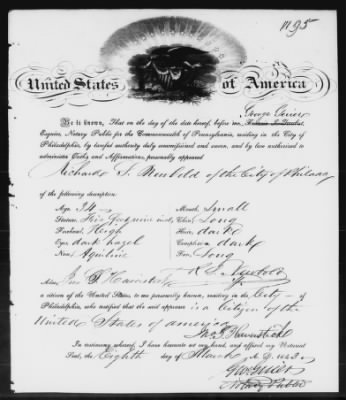 1195
United States of America
George Griscom
Be it known, That on the day of the date hereof, before me,
Esquire, Notary Public for the Commonwealth of Pennsylvania, residing in the City of
Philadelphia, by lawful authority duly commissioned and sworn, and by law authorized to
administer Oaths and Affirmations, personally appeared
Richard S. Newbold of the City of Philada
of the following description:
Age, 34 Mouth, Small
Stature, five feet nine inch Chin, Long
Forehead, High Hair, dark
Eyes, dark hazel Complexion, dark
Nose, Aquiline Face, Long
R S Newbold
Also, Jno S Haverstick
a citizen of the United States, to me personally known, residing in the City of
Philadelphia, who testified that the said appearer is a Citizen of the
United States of america
Jno S Haverstick
In testimony whereof, I have hereunto set my hand, and affixed my Notarial
Seal, the Eighth day of March A.D. 1843
Notary Public